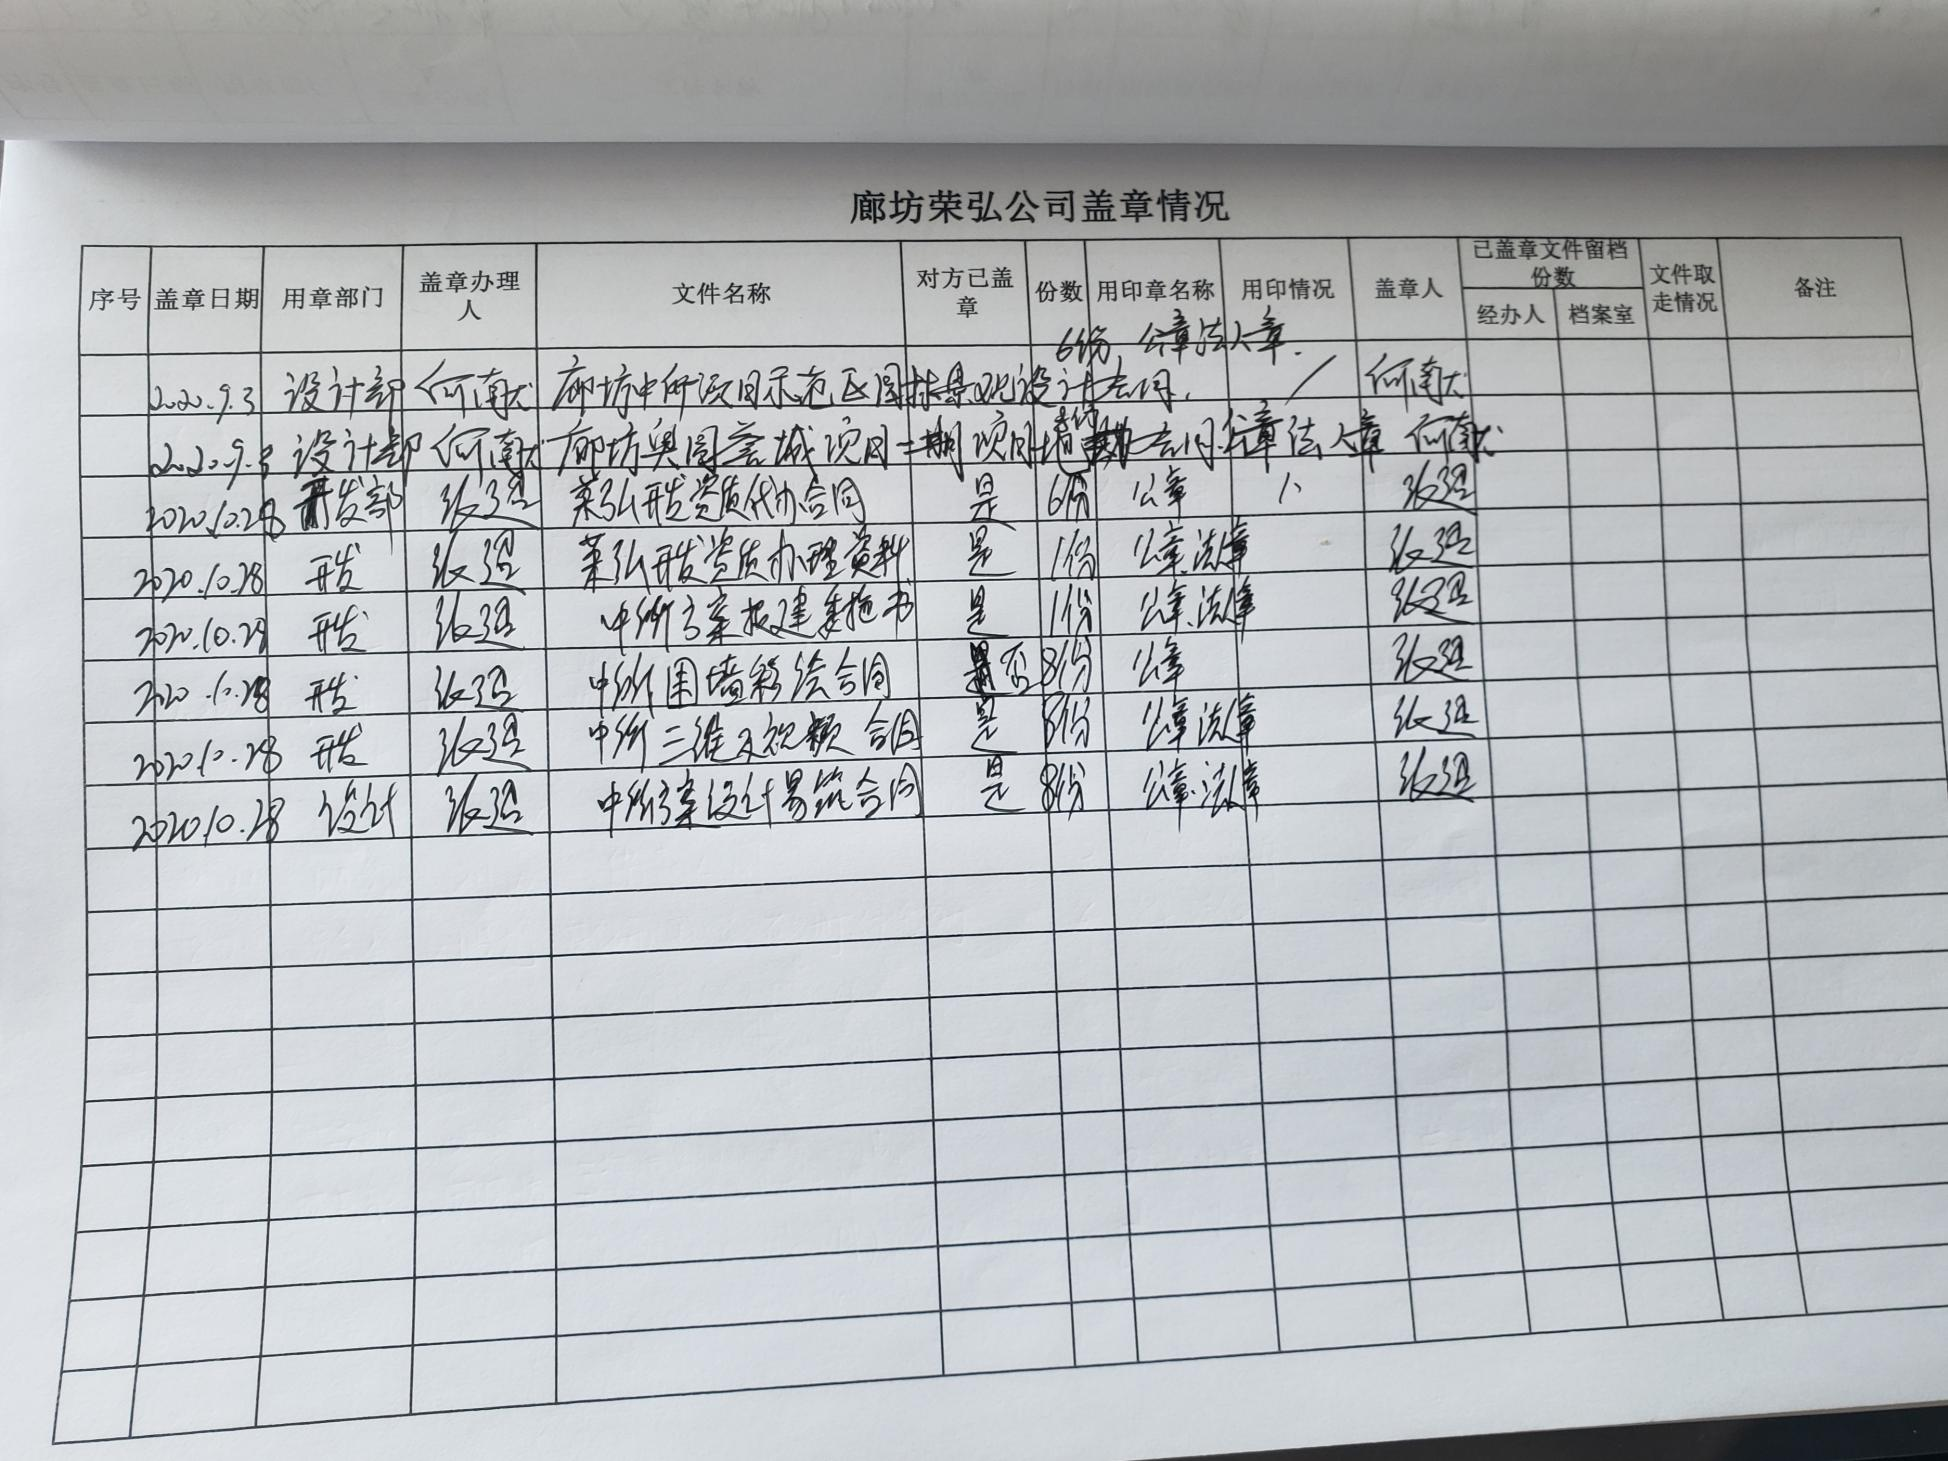 廊坊荣弘公司盖章情况
序号 盖章日期 用章部门 盖章办理人 文件名称 对方已盖章 份数 用印章名称 用印情况 盖章人 已盖章文件留档份数 经办人 档案室 文件取走情况 备注
6份, 公章法人章.
2020.9.3 设计部 何南 廊坊中所项目示范区园林景观设计合同. / 何南
2020.9.3 设计部 何南 廊坊奥园荟城项目二期项目 合同 公章法人章 何南
2020.10.28 开发部 张强 荣弘开发资质代办合同 是 6份 公章 张强
2020.10.28 开发 张强 荣弘开发资质办理资料 是 1份 公章.法人章 张强
2020.10.29 开发 张强 中所方案报建委托书 是 1份 公章.法人章 张强
2020.10.28 开发 张强 中所围墙 合同 否 8份 公章 张强
2020.10.28 开发 张强 中所三维及视频合同 是 8份 公章 法人章 张强
2020.10.28 设计 张强 中所方案设计易筑合同 是 8份 公章.法人章 张强